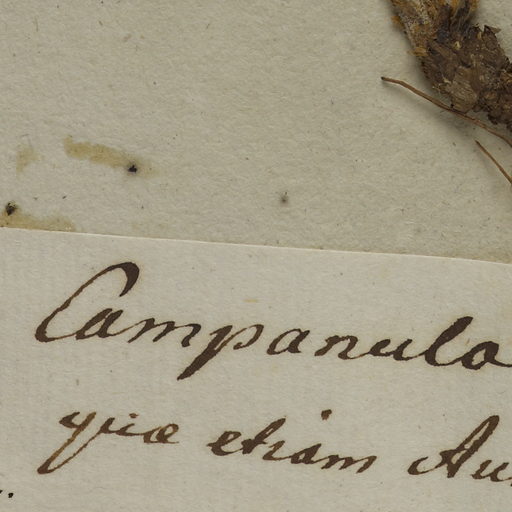 Campanula
quæ etiam Au